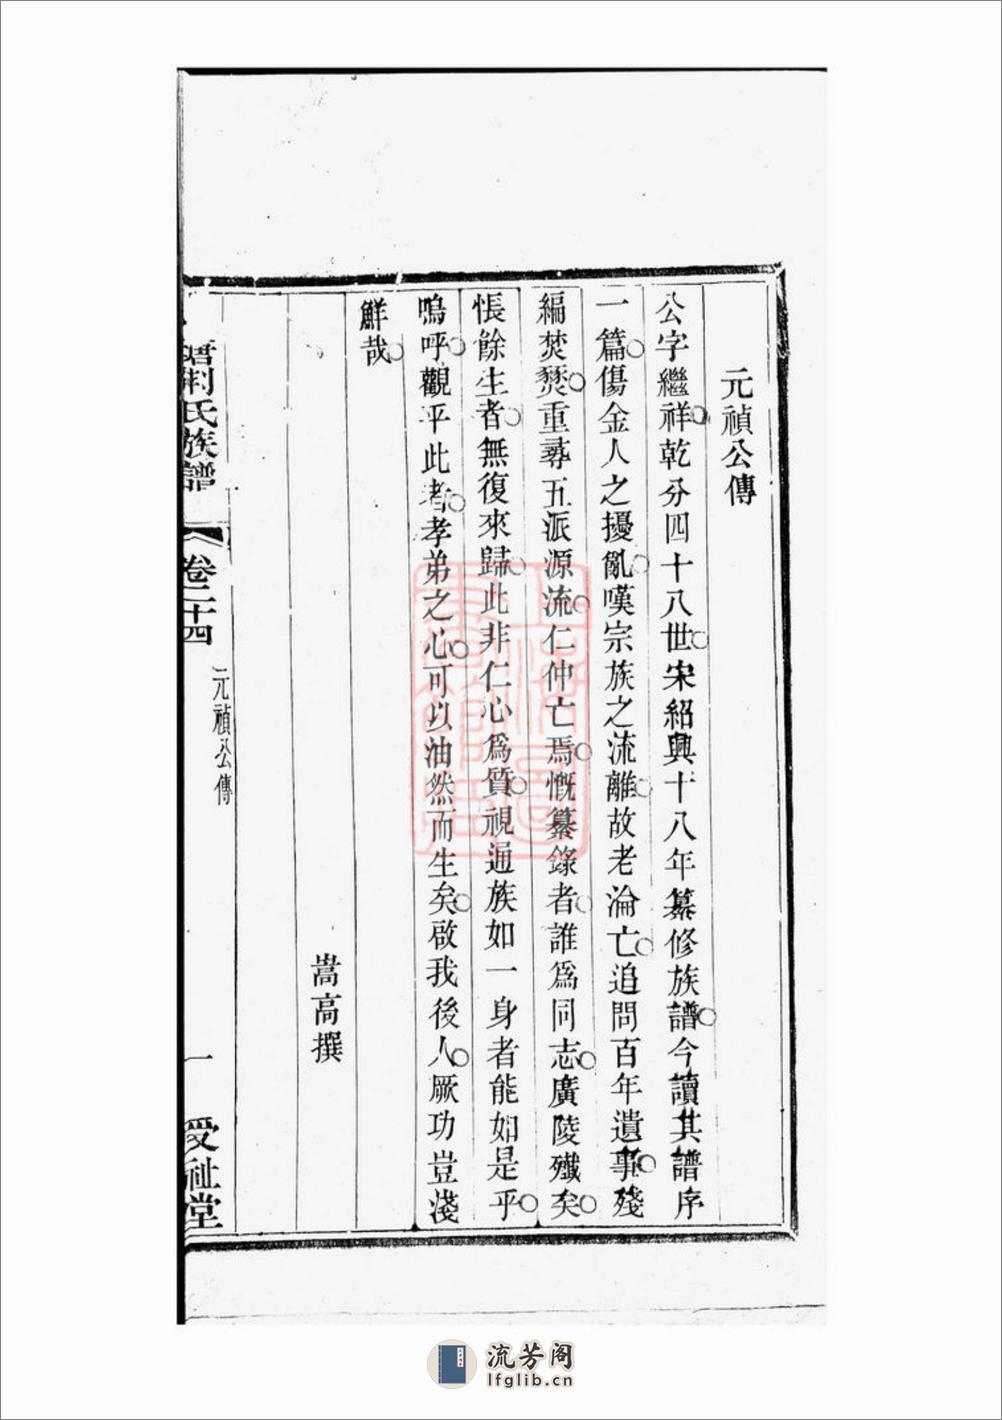 元禎公傳
公字繼祥乾分四十八世宋紹興十八年纂修族譜今讀其譜序
一篇傷金人之擾亂嘆宗族之流離故老淪亡追問百年遺事殘
編焚燹重尋五派源流仁仲亡焉慨纂錄者誰爲同志廣陵殲矣
悵餘生者無復來歸此非仁心爲質視通族如一身者能如是乎
嗚呼觀乎此者孝弟之心可以油然而生矣啟我後人厥功豈淺
鮮哉
嵩高撰
荆氏族譜
卷二十四
元禎公傳
一
受祉堂
流芳阁
lfglib.cn